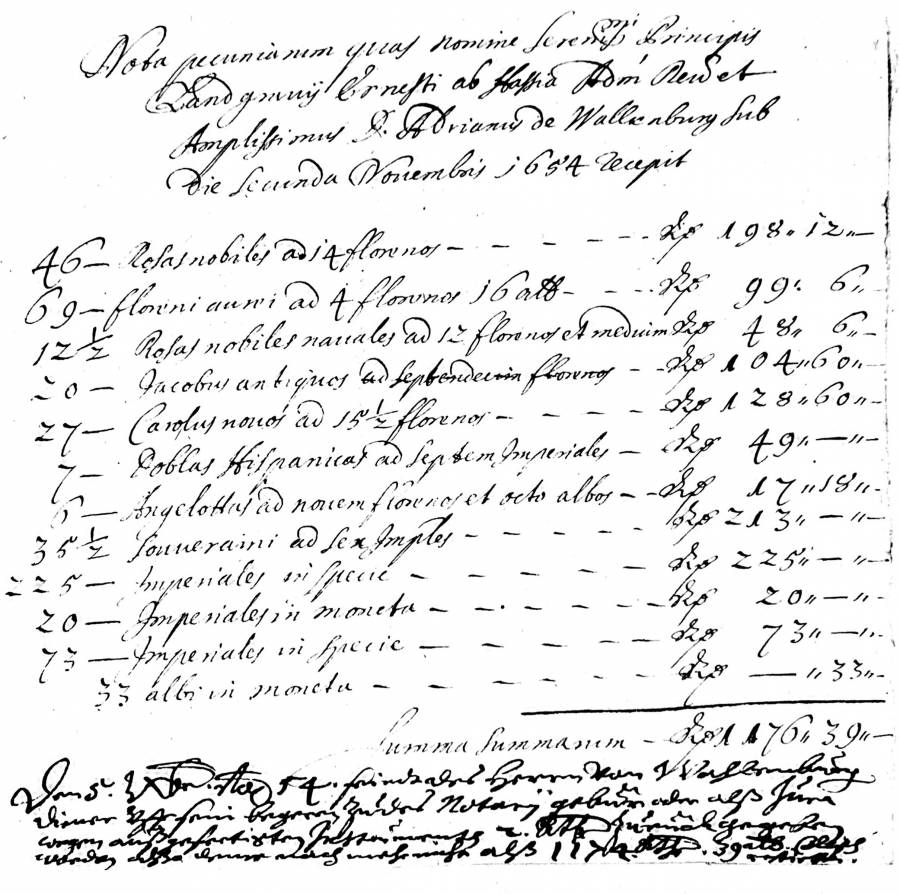 Nota pecuniarum quas nomine Serenissmi Principis
Landgravij Ernesti ab Hassia Adm Revd et
Amplissimus D. Adrianus de Wallenburg sub
Die secunda Novembris 1654 recepit
46 — Rosas nobiles ad 14 florenos — — — — — Rp 198" 12"—
69 — floreni aurei ad 4 florenos 16 alb — — — Rp 99" 6"—
12 1/2 Rosas nobiles navales ad 12 florenos et medium Rp 48" 6"—
20 — Jacobus antiquos ad septendecim florenos — Rp 104" 60"—
27 — Carolus novos ad 15 1/2 florenos — — — — Rp 128" 60"—
7 — Doblas Hispanicas ad septem Imperiales — Rp 49" — "—
6 — Angelottus ad novem florenos et octo albos — Rp 17" 18"—
35 1/2 Souveraini ad sex Imples — — — — — Rp 213" — "—
225 — Imperiales in specie — — — — — Rp 225" — "—
20 — Imperiales in moneta — — — — — Rp 20" — "—
73 — Imperiales in specie — — — — — Rp 73" — "—
33 albi in moneta — — — — — Rp — " 33"—
Summa summarum — Rp 1176" 39"—
Den 5. Xbr. Ao 54. seind des Herren von Wallenburg
diener uff sein begeren zu des Notarij gebühr oder alß Jura
wegen außgefertigten Instruments 2. Rth zurück gegeben
worden also denne noch mehr nicht alß 1174 Rth. 39 alb.